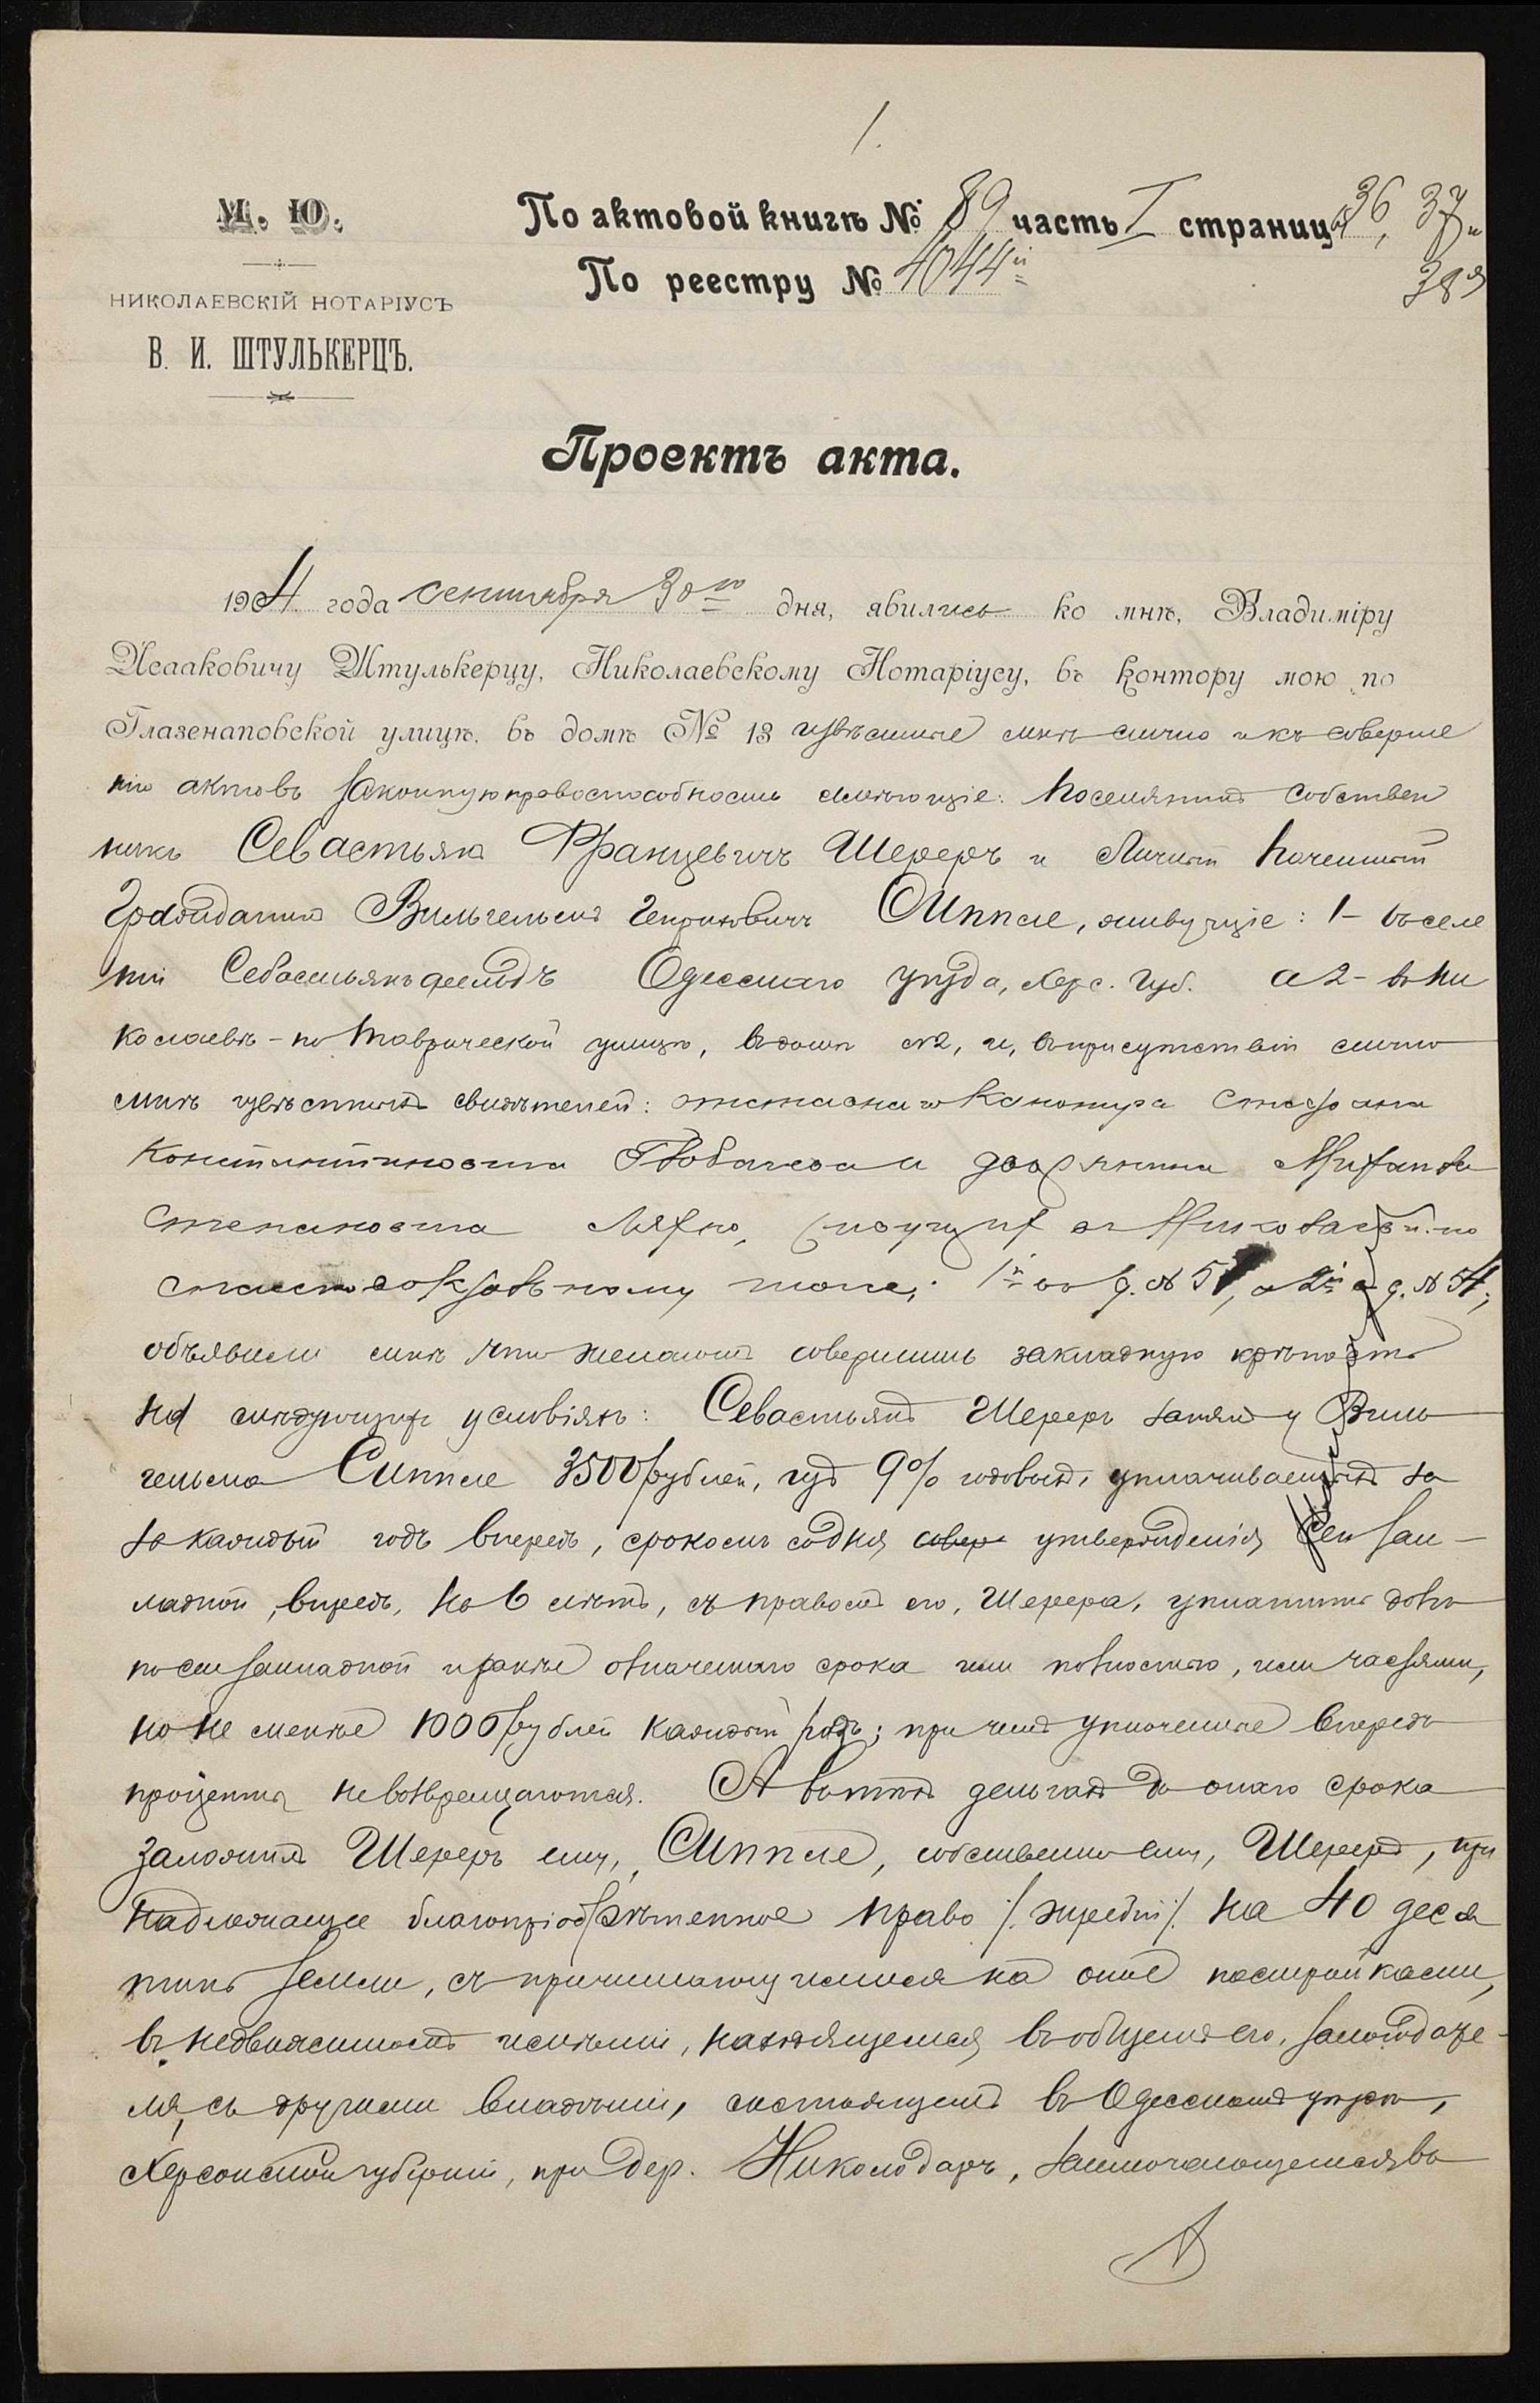 1.
М. Ю.
НИКОЛАЕВСКІЙ НОТАРІУСЪ
В. И. ШТУЛЬКЕРЦЪ.
По актовой книгѣ № 89 часть I страницы 36, 37 и
По реестру № 4044й 38я
Проектъ акта.
1904 года сентября 30го дня, явились ко мнѣ, Владиміру
Исааковичу Штулькерцу, Николаевскому Нотаріусу, въ контору мою по
Глазенаповской улицѣ, въ домѣ № 13 извѣстные мнѣ лично и къ соверше
нію актовъ законную правоспособность имѣющіе: поселянинъ собствен
никъ Севастьянъ Францевичъ Шереръ и Личный Почетный
Гражданинъ Вильгельмъ Генриховичъ Сиппле, живущіе: 1- въ селе
ніи Себастьянфельдъ Одесскаго уѣзда, Херс. Губ. а 2- въ Ни
колаевѣ - по Таврической улицѣ, въ домѣ №2, и, въ присутствіи лично
мнѣ извѣстныхъ свидѣтелей: отставнаго Канонира Стефана
Константиновича и дворянина
Степановича Ляхно, въ Николаевѣ: по
1й въ д. № 51, а 2й въ д. № 54;
объявили мнѣ что желаютъ совершить закладную крѣпость
на слѣдующихъ условіяхъ: Севастьянъ Шереръ занялъ у Виль
гельма Сиппле 3500 рублей, изъ 9% годовыхъ, уплачиваемыхъ за
за каждый годъ впередъ, срокомъ со дня совер утвержденія сей зак-
ладной, впредь, на 6 лѣтъ, съ правомъ его, Шерера, уплатить долгъ
по сей закладной и ранѣе означеннаго срока или полностью, или частями,
но не менѣе 1000 рублей каждый разъ; при чемъ уплоченные впередъ
проценты не возвращаются. А въ тѣхъ деньгахъ до онаго срока
заложилъ Шереръ ему, Сиппле, собственно ему, Шереру, при
надлежащее благопріобрѣтенное право /. жребій /. на 40 деся
тинъ земли, съ причитающимися на оные постройками,
въ недвижимомъ имѣніи, находящемся въ общемъ его, залогодате-
ля, съ другими владѣніи, состоящемъ въ Одесскомъ уѣздѣ,
Херсонской губерніи, при дер. Николодаръ, заключающемся въ